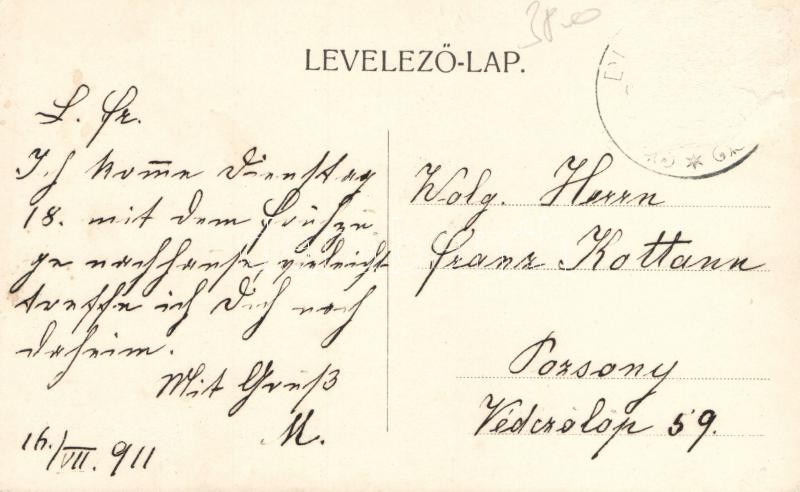 38.-
LEVELEZŐ-LAP.
L. Fr.
Ich kom̄e Dienstag
18. mit dem Frühzu
ge nachhause, vieleicht
treffe ich Dich noch
daheim.
Mit Gruß
M.
16./VII. 911
Wolg. Herrn
Franz Kottann
Pozsony
Védczölöp 59.